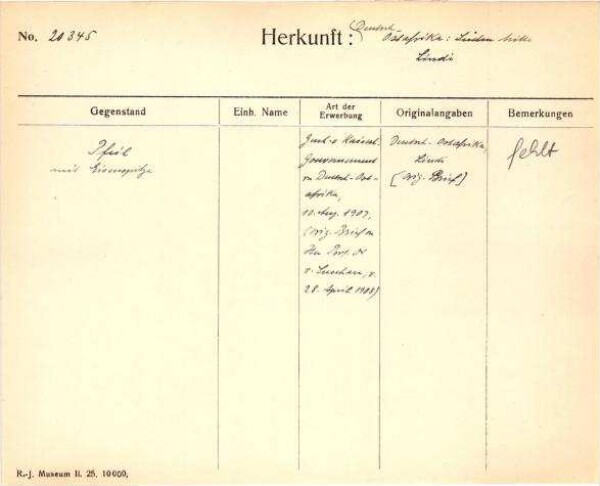 No. 20345
Herkunft: Deutsch
Ostafrika: Süden
Lindi
Gegenstand
Einh. Name
Art der
Erwerbung
Originalangaben
Bemerkungen
Pfeil
mit Eisenspitze
Kaiserl.
Gouvernement
v. Deutsch-Ost-
afrika,
10. Aug. 1907,
(orig. Brief an
Hrn Prof. Dr
v. Luschan, v.
28. April 1908)
Deutsch-Ostafrika,
Lindi
[orig. Brief]
fehlt
R.-J. Museum II. 25. 10000.